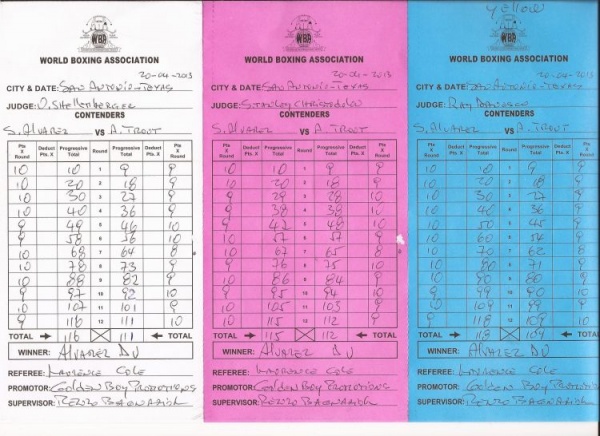 WBA
WORLD BOXING ASSOCIATION
20-04-2013
CITY & DATE: SAN ANTONIO-TEXAS
JUDGE: O. Shellenberger
CONTENDERS
S. ALVAREZ VS A. TROUT
Pts X Round Deduct Pts. X Progressive Total Round Progressive Total Deduct Pts. X Pts X Round
10 10 1 9 9
10 20 2 18 9
10 30 3 27 9
10 40 4 36 9
9 49 5 46 10
9 58 6 56 10
10 68 7 64 8
10 78 8 73 9
10 88 9 82 9
9 97 10 92 10
10 107 11 101 9
9 116 12 111 10
TOTAL 116 111 TOTAL
WINNER: ALVAREZ DU
REFEREE: LAURENCE COLE
PROMOTOR: Golden Boy PROMOTIONS
SUPERVISOR: RENZO BAGNARIOL
WBA
WORLD BOXING ASSOCIATION
20-04-2013
CITY & DATE: SAN ANTONIO-TEXAS
JUDGE: STANLEY CHRISTODOULOU
CONTENDERS
S. ALVAREZ VS A. TROUT
Pts X Round Deduct Pts. X Progressive Total Round Progressive Total Deduct Pts. X Pts X Round
10 10 1 9 9
10 20 2 18 9
9 29 3 28 10
9 38 4 38 10
9 47 5 48 10
10 57 6 57 9
10 67 7 65 8
9 76 8 75 10
10 86 9 84 9
9 95 10 94 10
10 105 11 103 9
10 115 12 112 9
TOTAL 115 112 TOTAL
WINNER: ALVAREZ DU
REFEREE: LAURENCE COLE
PROMOTOR: Golden Boy PROMOTIONS
SUPERVISOR: RENZO BAGNARIOL
YELLOW
WBA
WORLD BOXING ASSOCIATION
20-04-2013
CITY & DATE: SAN ANTONIO-TEXAS
JUDGE: RAY
CONTENDERS
S. ALVAREZ VS A. TROUT
Pts X Round Deduct Pts. X Progressive Total Round Progressive Total Deduct Pts. X Pts X Round
10 10 1 9 9
10 20 2 18 9
10 30 3 27 9
10 40 4 36 9
10 50 5 45 9
10 60 6 54 9
10 70 7 62 8
10 80 8 71 9
10 90 9 80 9
9 99 10 90 10
10 109 11 99 9
9 118 12 109 10
TOTAL 118 109 TOTAL
WINNER: ALVAREZ DU
REFEREE: LAURENCE COLE
PROMOTOR: Golden Boy PROMOTIONS
SUPERVISOR: RENZO BAGNARIOL